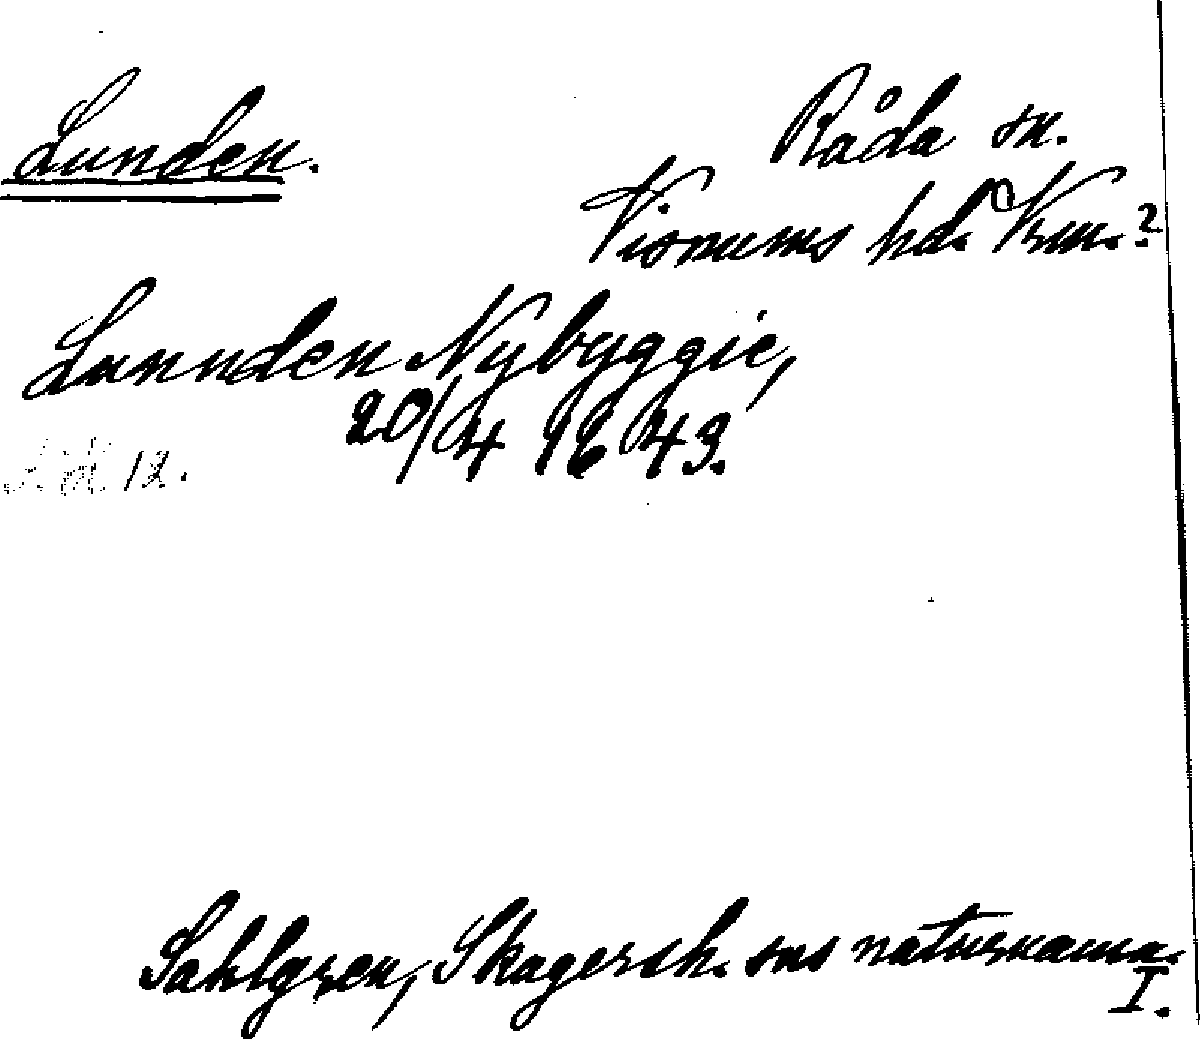 Lunden.
Råda sn.
Visnums hd. Vrm.?
Lunnden Nybyggie,
20/4 1643.
12.
Sahlgren, Skagersh. sns naturnamn.
I.